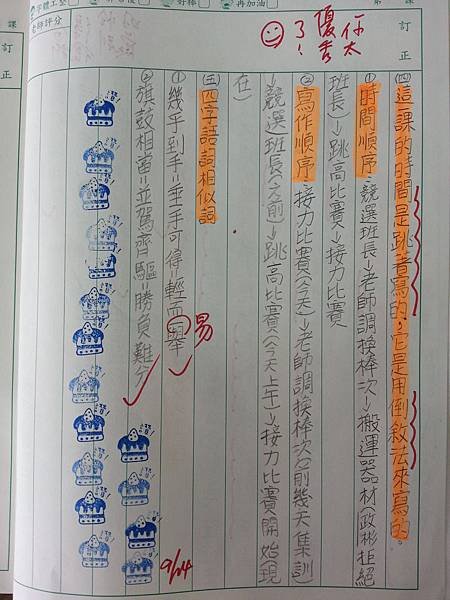 課
訂正
你太優秀了!
㈣這課的時間是跳著寫的,它是用倒敘法來寫的。
①時間順序 競選班長→老師調換棒次→搬運器材(政彬拒絕
班長)→跳高比賽→接力比賽
②寫作順序 接力比賽(今天)→老師調換棒次(前幾天集訓)
→競選班長(之前)→跳高比賽(今天上午)→接力比賽開始(現
在)
㈤四字語詞相似詞
①幾乎到手=垂手可得=輕而舉
易
②旗鼓相當=並駕齊驅=勝負難分
9/24
字體工整
好棒
再加油
老師評分
訂正
課